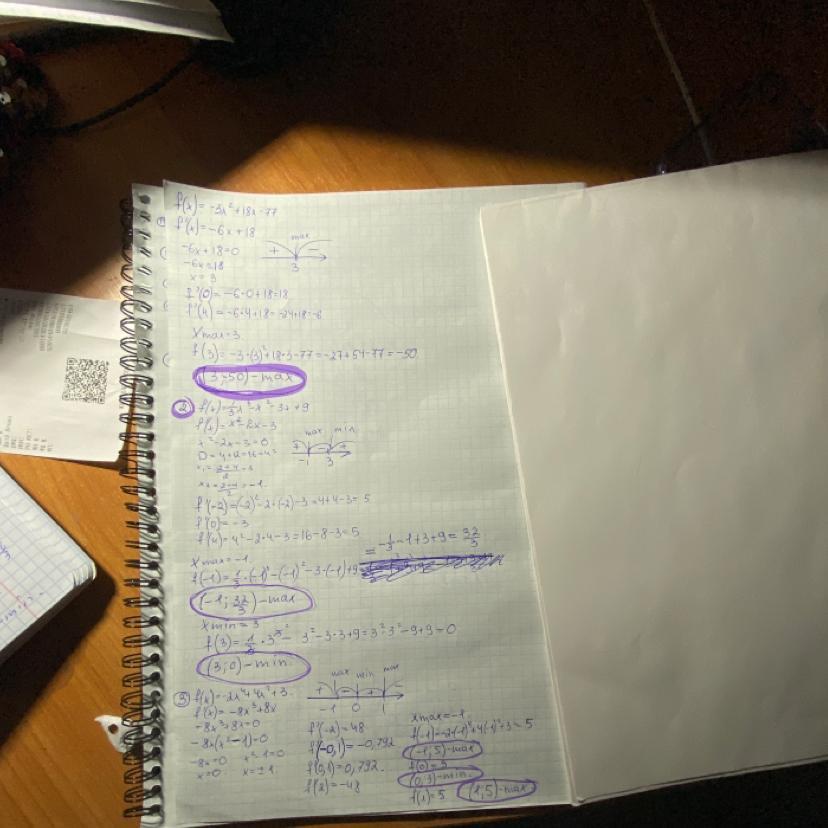 f(x) = -3x² + 18x - 77
① f'(x) = -6x + 18
-6x + 18 = 0
-6x = 18
x = 3
+ max -
3
f'(0) = -6·0 + 18 = 18
f'(4) = -6·4 + 18 = -24 + 18 = -6
xmax = 3
f(3) = -3·(3)² + 18·3 - 77 = -27 + 54 - 77 = -50
(3; -50) - max
② f(x) = 1/3 x³ - x² - 3x + 9
f'(x) = x² - 2x - 3
x² - 2x - 3 = 0
D = 4 + 12 = 16 = 4²
x₁ = (2+4)/2 = 3
x₂ = (2-4)/2 = -1
+ max - min +
-1 3
f'(-2) = (-2)² - 2·(-2) - 3 = 4 + 4 - 3 = 5
f'(0) = -3
f'(4) = 4² - 2·4 - 3 = 16 - 8 - 3 = 5
xmax = -1
f(-1) = 1/3·(-1)³ - (-1)² - 3·(-1) + 9 = -1/3 - 1 + 3 + 9 = 32/3
(-1; 32/3) - max
xmin = 3
f(3) = 1/3 · 3³ - 3² - 3·3 + 9 = 3² - 3² - 9 + 9 = 0
(3; 0) - min
③ f(x) = -2x⁴ + 4x² + 3
f'(x) = -8x³ + 8x
-8x³ + 8x = 0
-8x(x² - 1) = 0
-8x = 0 x² - 1 = 0
x = 0 x = ±1
+ max - min + max
-1 0 1
f'(-2) = 48
f'(-0,1) = -0,792
f'(0,1) = 0,792
f'(2) = -48
xmax = -1
f(-1) = -2(-1)⁴ + 4(-1)² + 3 = 5
(-1; 5) - max
f(0) = 3
(0; 3) - min
f(1) = 5 (1; 5) - max